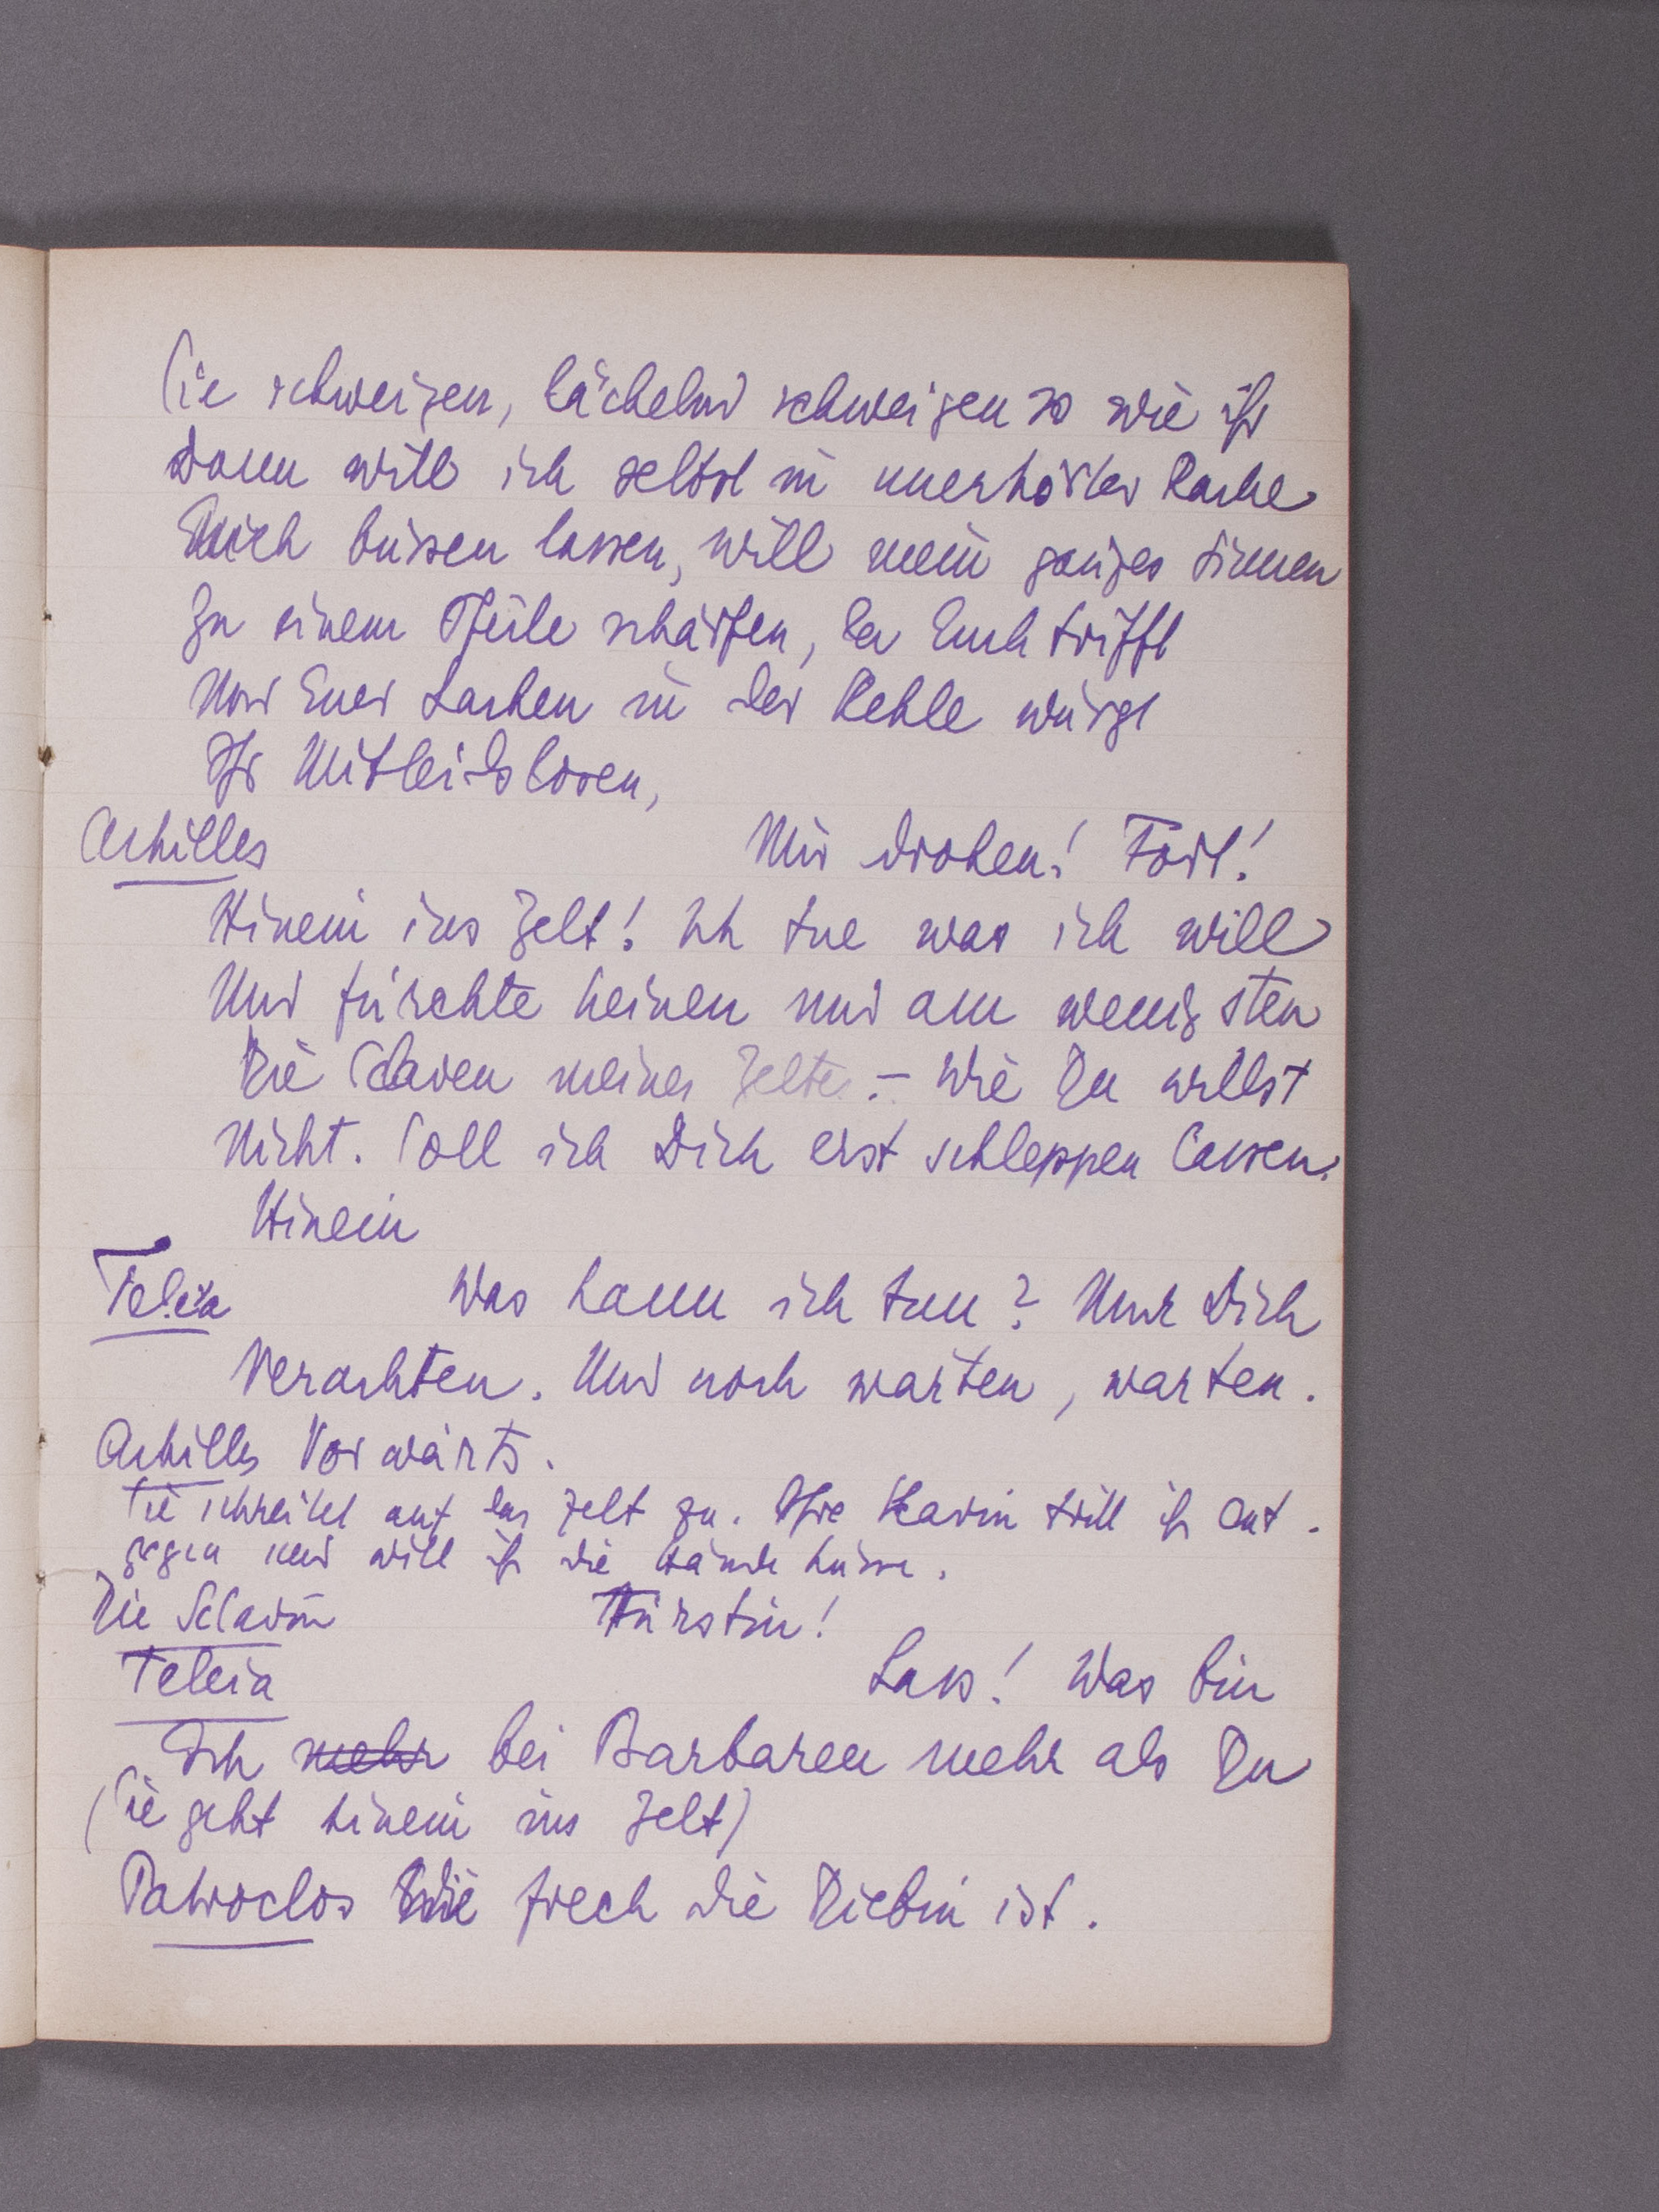 Sie schweigen, lächelnd schweigen so wie ihr
Dann will ich selbst in unerhörter Rache
Euch büssen lassen, will mein ganzes Sinnen
Zu einem Pfeile schärfen, der Euch trifft
Und Euer Lachen in der Kehle würgt
Ihr Mitleidslosen,
Achilles Mir drohen! Fort!
Hinein ins Zelt! Ich tue was ich will
Und fürchte keinen und am wenigsten
Die Sclaven meines Zeltes. – Wie Du willst
Nicht. Soll ich Dich erst schleppen lassen.
Hinein
Teleia Was kann ich tun? Nur Dich
Verachten. Und noch warten, warten.
Achilles Vorwärts.
Sie schreitet auf das Zelt zu. Ihre Sclavin tritt ihr ent-
gegen und will ihr die Hände küssen.
Die Sclavin Fürstin!
Teleia Lass! Was bin
Ich mehr bei Barbaren mehr als Du
(Sie geht hinein ins Zelt)
Patroclos Wie frech die Diebin ist.